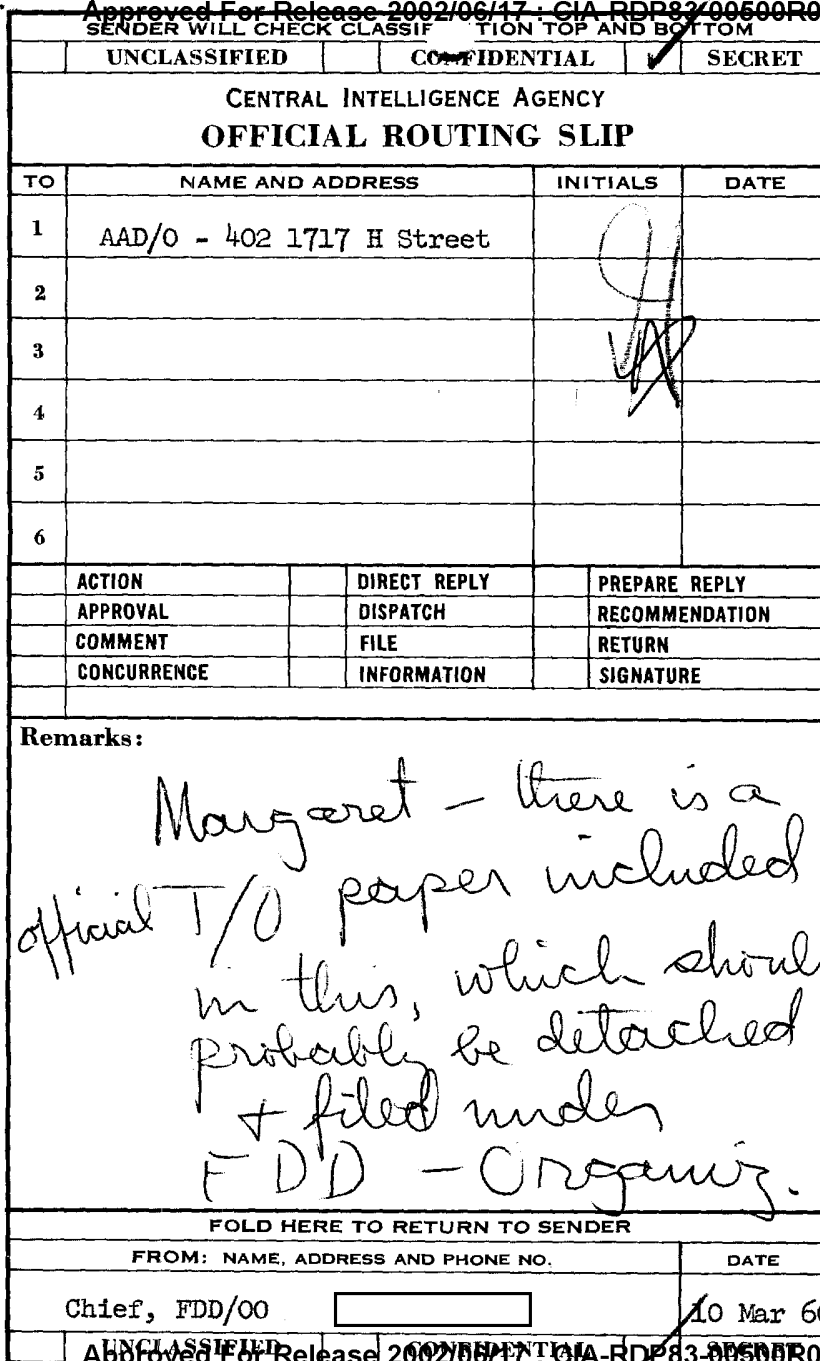 Approved For Release 2002/06/17 : CIA-RDP83-00500R0
SENDER WILL CHECK CLASSIF TION TOP AND BOTTOM
UNCLASSIFIED CONFIDENTIAL SECRET
CENTRAL INTELLIGENCE AGENCY
OFFICIAL ROUTING SLIP
TO NAME AND ADDRESS INITIALS DATE
1 AAD/O - 402 1717 H Street
2
3
4
5
6
ACTION DIRECT REPLY PREPARE REPLY
APPROVAL DISPATCH RECOMMENDATION
COMMENT FILE RETURN
CONCURRENCE INFORMATION SIGNATURE
Remarks:
Margaret – there is a
official T/O paper included
in this, which shoul
probably be detached
+ filed under
FDD – Organiz.
FOLD HERE TO RETURN TO SENDER
FROM: NAME, ADDRESS AND PHONE NO. DATE
Chief, FDD/OO 10 Mar 60
UNCLASSIFIED CONFIDENTIAL SECRET
Approved For Release 2002/06/17 : CIA-RDP83-00500R0